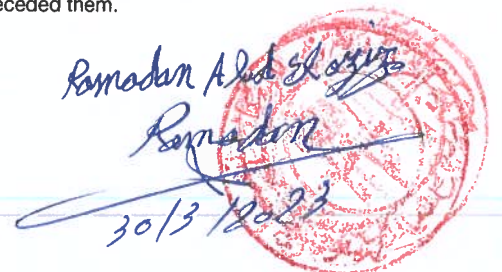 eceded them.
Ramadan Abd El aziz
Ramadan
30/3/2023